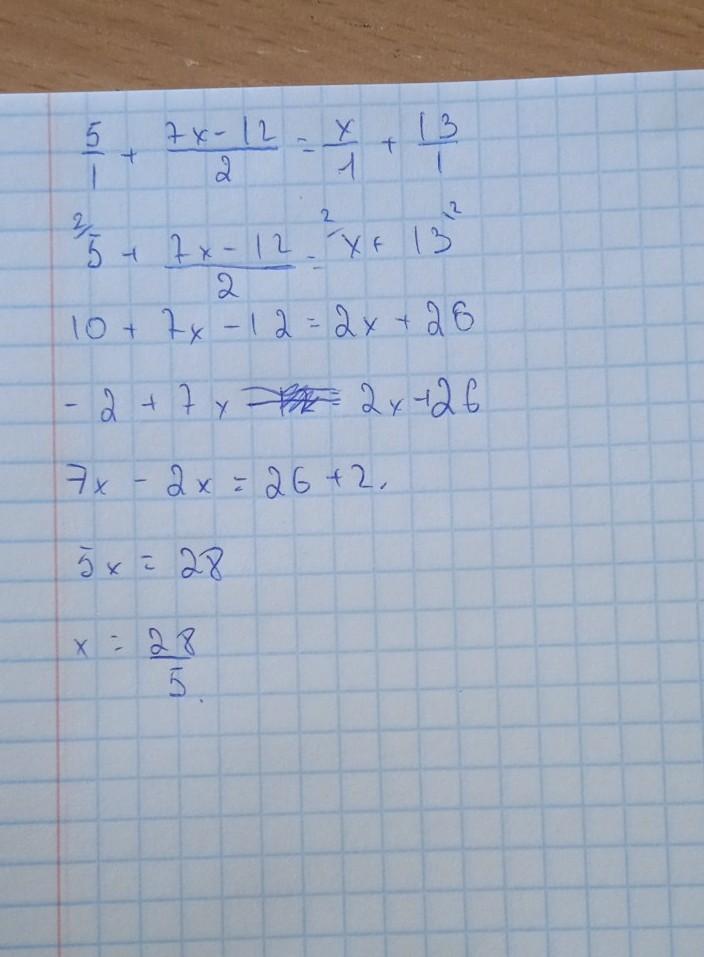 5/1 + (7x-12)/2 = x/1 + 13/1
²/5 + (7x-12)/2 = ²/x + 13\²
10 + 7x - 12 = 2x + 26
-2 + 7x = 2x + 26
7x - 2x = 26 + 2.
5x = 28
x = 28/5.